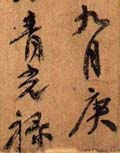 九月庚
青光禄